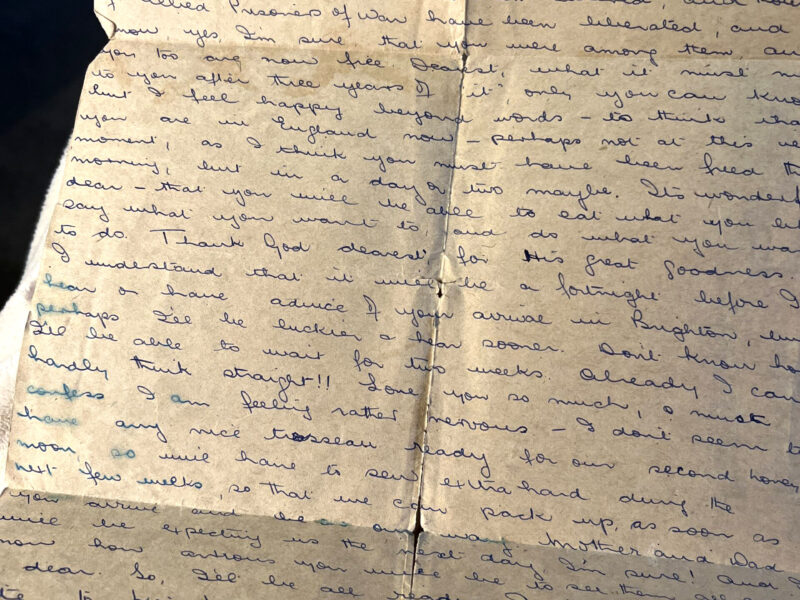 Allied Prisoners of War have been liberated, and
now, yes, I'm sure, that you were among them, an
you too are now free. Dearest, what it must m
to you after three years of it, only you can know
but I feel happy beyond words - to think tha
you are in England now - perhaps not at this ve
moment, as I think you must have been freed th
morning, but in a day or two maybe. Its wonderf
dear - that you will be able to eat what you li
say what you want to, and do what you wan
to do. Thank God dearest for His great goodness.
I understand that it will be a fortnight before I
hear or have advice of your arrival in Brighton, bu
perhaps I'll be luckier & hear sooner. Don't know ho
I'll be able to wait for two weeks. Already I can
hardly think straight!! Love you so much, & must
confess I am feeling rather nervous - I don't seem t
have any nice trosseau ready for our second honey
moon, so will have to sew extra hard durng the
next few weeks, so that we can pack up, as soon as
you arrive and be on our way. Mother and Dad
will be expecting us the next day, I'm sure! and I
know how anxious you will be to see them all
dear. So, I'll be all ready